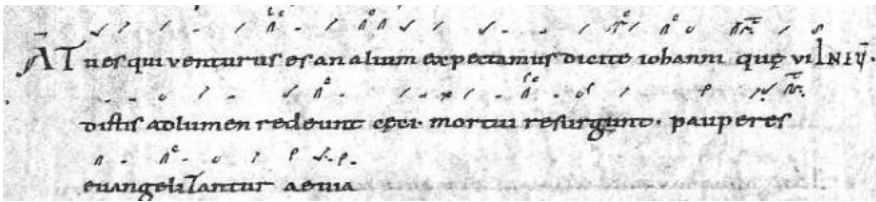 Ā Tu es qui venturus es an alium expectamus dicite iohanni quę vi IN EṼ.
distis ad lumen redeunt ceci. mortui resurgunt. pauperes
euangelizantur aeuia